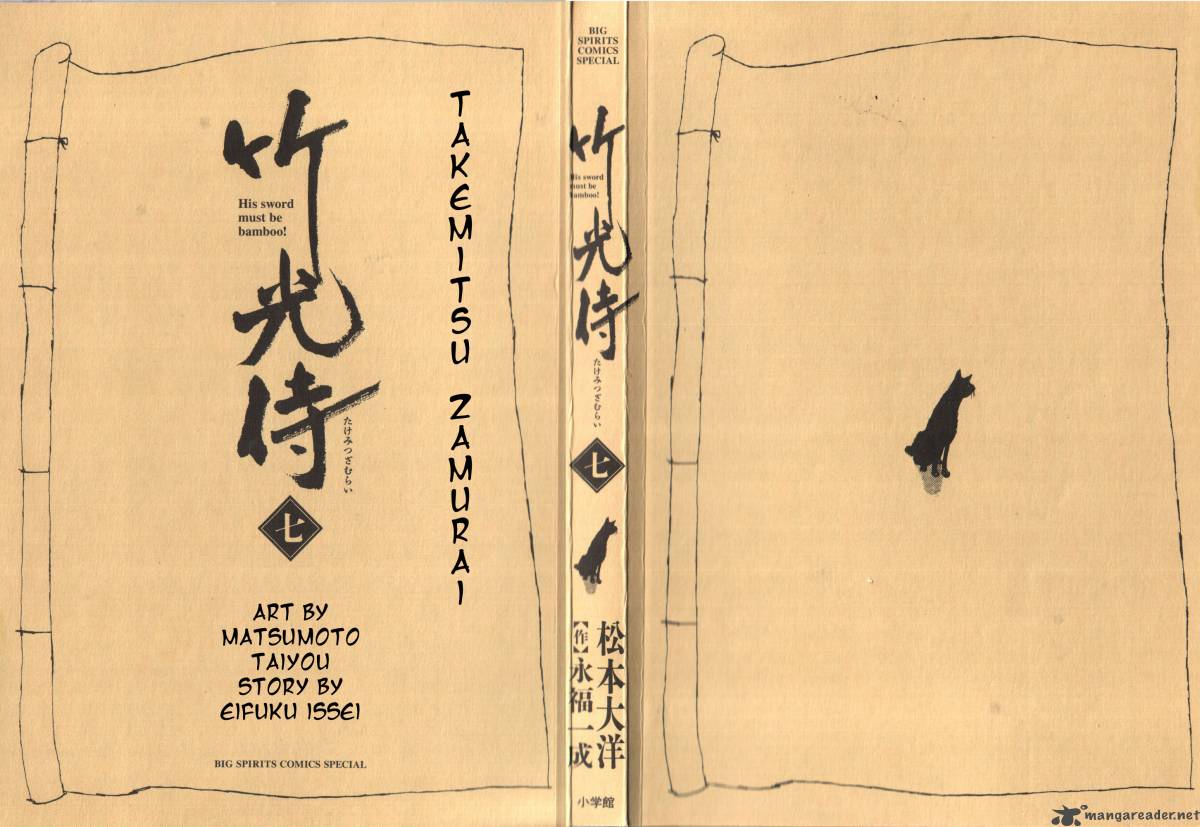 竹光侍
His sword
must be
bamboo!
たけみつざむらい
七
TAKEMITSU ZAMURAI
ART BY
MATSUMOTO
TAIYOU
STORY BY
EIFUKU ISSEI
BIG SPIRITS COMICS SPECIAL
BIG
SPIRITS
COMICS
SPECIAL
竹光侍
His sword
must be
bamboo!
たけみつざむらい
七
松本大洋
【作】永福一成
小学館
mangareader.net